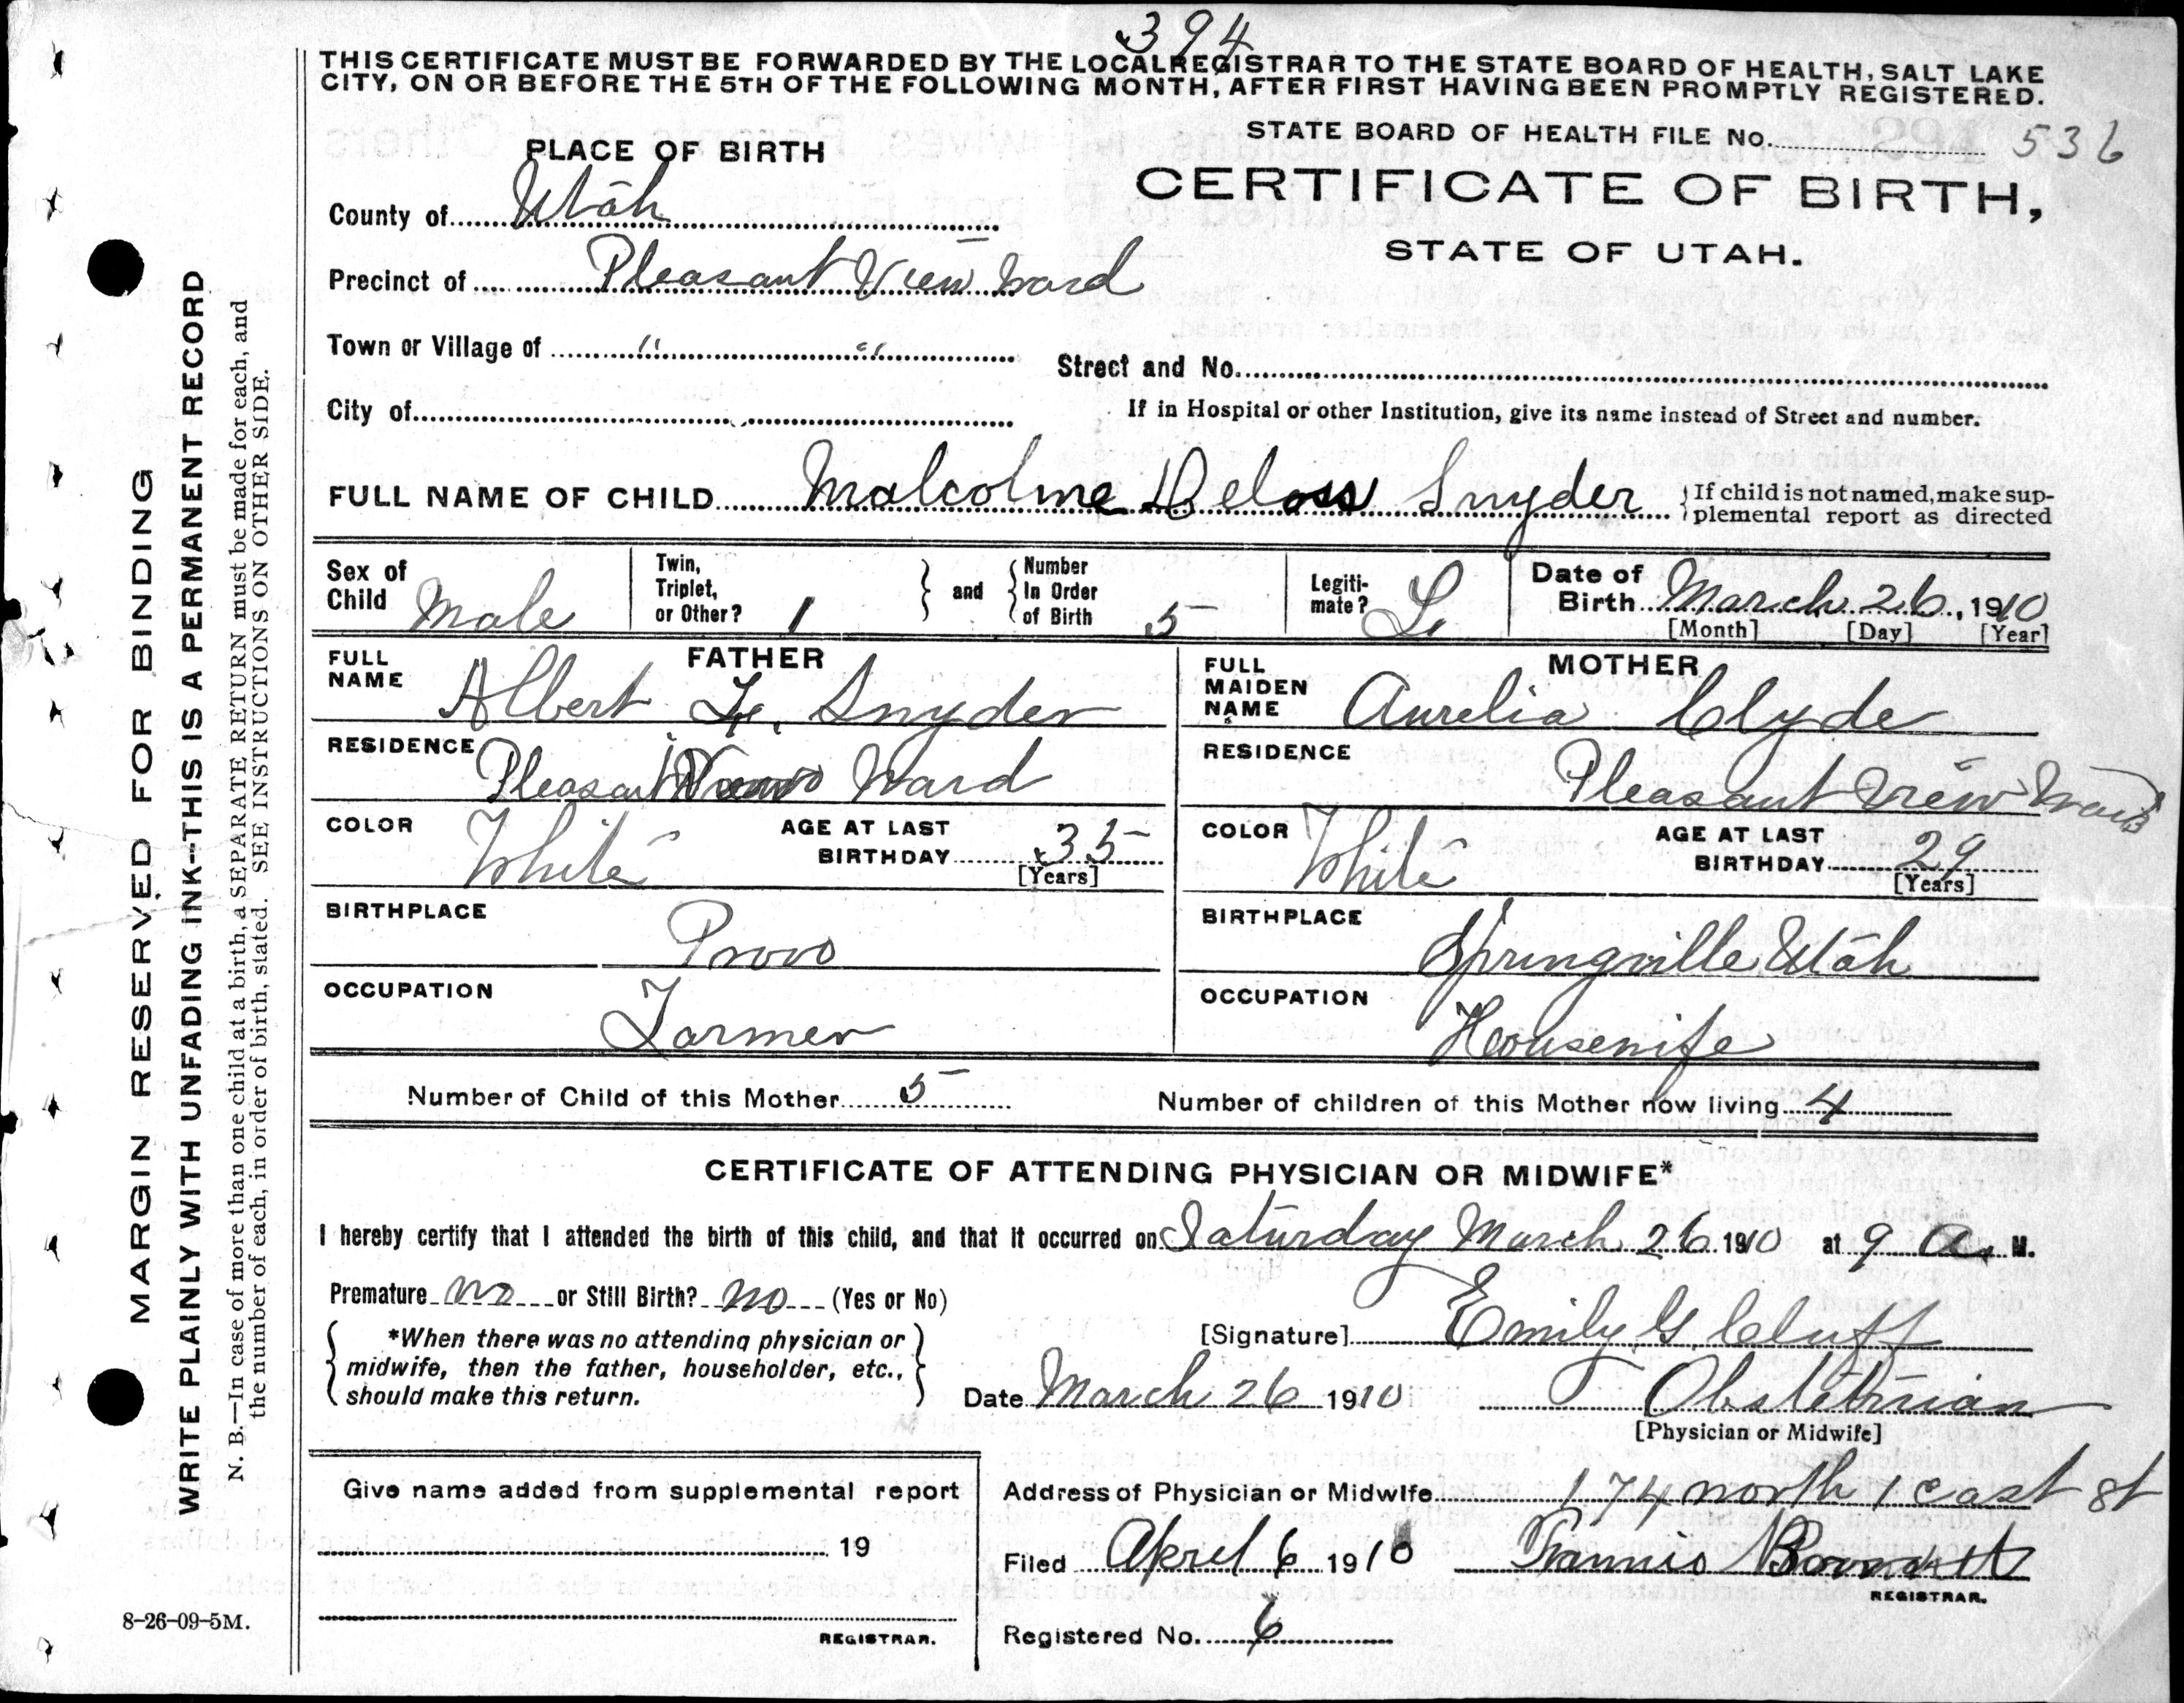 394
THIS CERTIFICATE MUST BE FORWARDED BY THE LOCAL REGISTRAR TO THE STATE BOARD OF HEALTH, SALT LAKE
CITY, ON OR BEFORE THE 5TH OF THE FOLLOWING MONTH, AFTER FIRST HAVING BEEN PROMPTLY REGISTERED.
STATE BOARD OF HEALTH FILE No. 536
PLACE OF BIRTH
CERTIFICATE OF BIRTH,
STATE OF UTAH.
County of Utah
Precinct of Pleasant View Ward
Town or Village of " "
Street and No.
City of
If in Hospital or other Institution, give its name instead of Street and number.
FULL NAME OF CHILD Malcolme Deloss Snyder
If child is not named, make sup-
plemental report as directed
Sex of
Child Male
Twin,
Triplet,
or Other? 1
and
Number
In Order
of Birth 5
Legiti-
mate? L
Date of
Birth March 26, 1910
[Month] [Day] [Year]
FATHER
FULL
NAME Albert F. Snyder
RESIDENCE Pleasant View Ward
COLOR White
AGE AT LAST
BIRTHDAY 35
[Years]
BIRTHPLACE Provo
OCCUPATION Farmer
MOTHER
FULL
MAIDEN
NAME Aurelia Clyde
RESIDENCE Pleasant View Ward
COLOR White
AGE AT LAST
BIRTHDAY 29
[Years]
BIRTHPLACE Springville Utah
OCCUPATION Housewife
Number of Child of this Mother 5
Number of children of this Mother now living 4
CERTIFICATE OF ATTENDING PHYSICIAN OR MIDWIFE*
I hereby certify that I attended the birth of this child, and that it occurred on Saturday March 26 1910 at 9 a. M.
Premature no or Still Birth? no (Yes or No)
*When there was no attending physician or
midwife, then the father, householder, etc.,
should make this return.
[Signature] Emily G Cluff
Date March 26 1910
Obstetrician
[Physician or Midwife]
Give name added from supplemental report
19
REGISTRAR.
Address of Physician or Midwife 174 north 1 east st
Filed April 6 1910
REGISTRAR.
Registered No. 6
MARGIN RESERVED FOR BINDING
WRITE PLAINLY WITH UNFADING INK--THIS IS A PERMANENT RECORD
N. B.—In case of more than one child at a birth, a SEPARATE RETURN must be made for each, and
the number of each, in order of birth, stated. SEE INSTRUCTIONS ON OTHER SIDE.
8-26-09-5M.